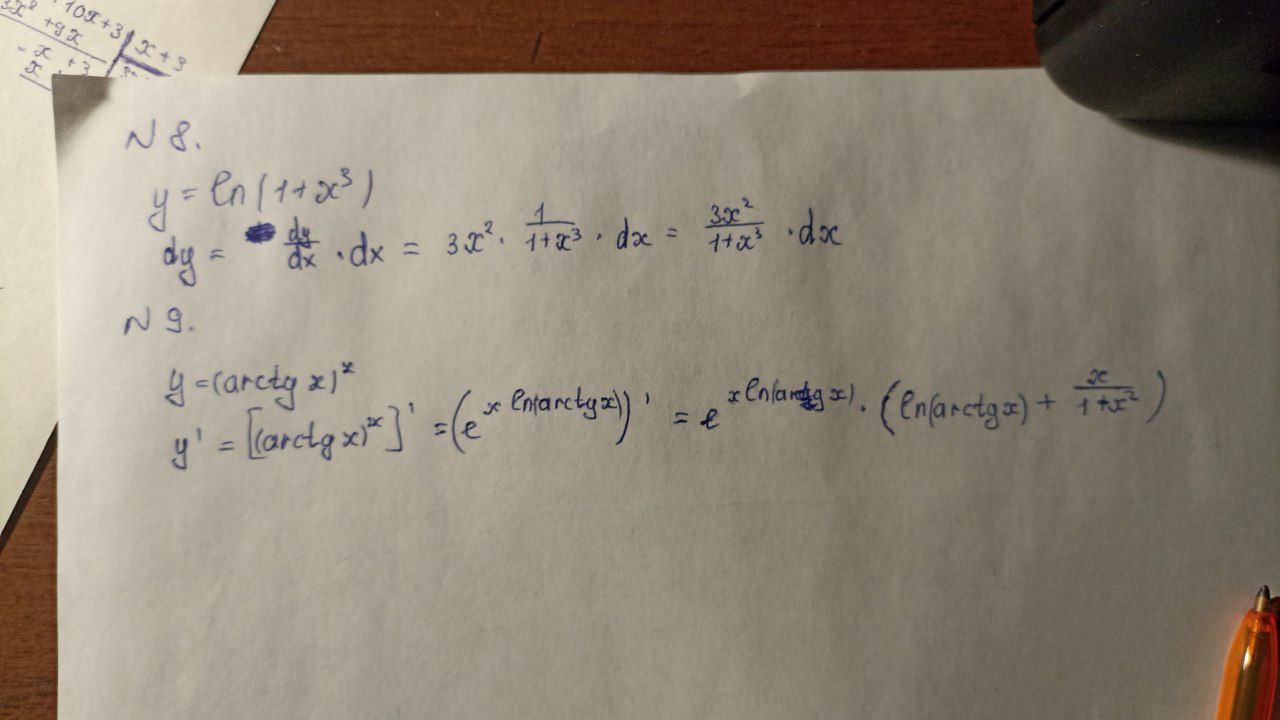 10x+3 | x+3
3x² +9x
- x +3
x
N 8.
y = ln(1+x³)
dy = dy/dx · dx = 3x² · 1/(1+x³) · dx = 3x²/(1+x³) · dx
N 9.
y = (arctg x)ˣ
y' = [(arctg x)ˣ]' = (e^(x ln(arctg x)))' = e^(x ln(arctg x)) · (ln(arctg x) + x/(1+x²))